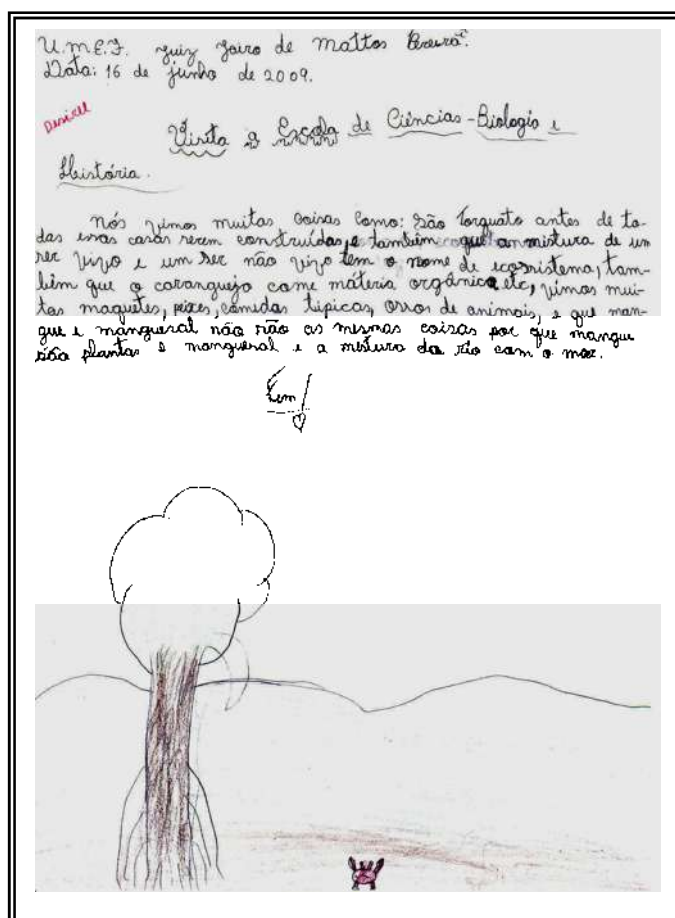 U.M.E.F. Juiz Jairo de Mattos Pereira.
Data: 16 de junho de 2009.
Visita a Escola de Ciências - Biologia e
História.
Nós vimos muitas coisas como: São Torquato antes de to-
das essas casas serem construídas, e também que a mistura de um
ser vivo e um ser não vivo tem o nome de ecossistema, tam-
bém que o caranguejo come matéria orgânica etc, vimos mui-
tas maquetes, peixes, comidas típicas, ossos de animais, e que man-
gue e manguesal não são as mesmas coisas por que mangue
são plantas e manguesal e a mistura do rio com o mar.